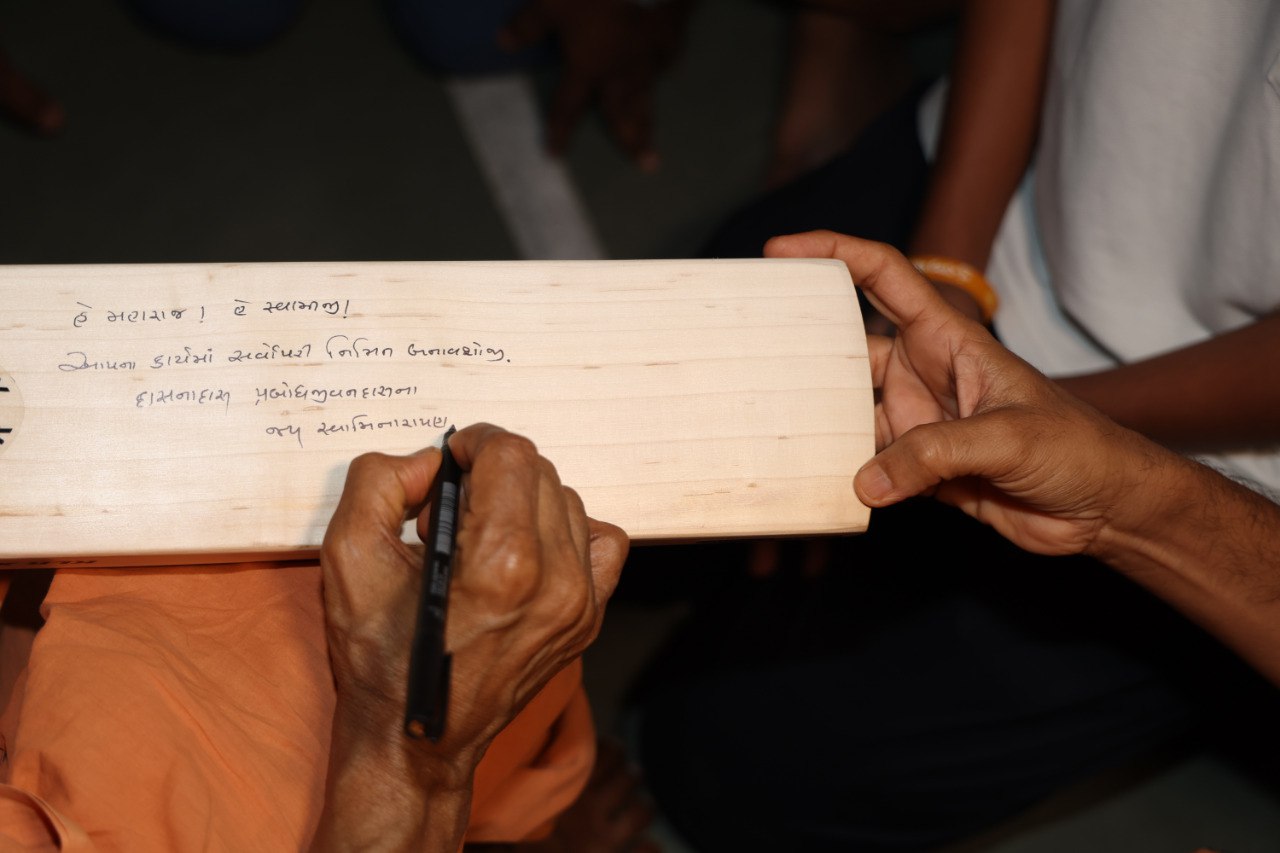 હે મહારાજ ! હે સ્વામીજી !
આપના કાર્યમાં સર્વોપરી નિમિત્ત બનાવશોજી.
દાસનાદાસ પ્રબોધજીવનદાસના
જય સ્વામિનારાયણ